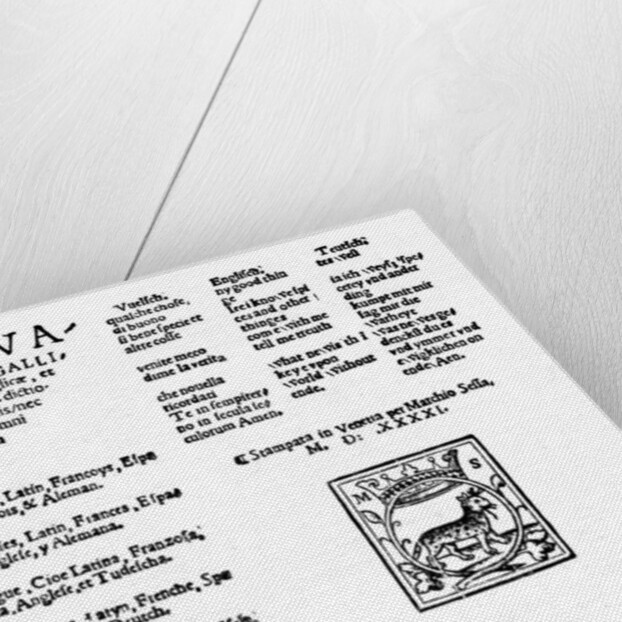 VA-
GALLI,
licæ, et
dictio-
is/nec
mni
a
Latin, Francoys, Espa
ois, & Aleman.
es, Latin, Frances, Espa
glese, y Alemana.
gue, Cioe Latina, Franzosa,
a, Anglese, et Tudescha.
atyn, Frenche, Spa
Vuelsch:
qualche chose,
di buono
si bene specie et
altre cosse
venite meco
dime la verita
che nouella
ricordati
Te in sempiter
no in secula se
culorum Amen.
Englisch:
ny good thin
ge
I rei know
ces and other
thinges
come with me
tell me treuth
What newis th I
key e vpon
World without
ende.
Teutsch:
tes
ia ich
cerey vnd ander
ding
kumpt mit mir
sag mir die
Warheyt
Was newer ge
denckst du es
vnd ymmer vnd
ewigklichen on
ende, Aen.
¶ Stampata in Venetia per Marchio Sessa,
M. D: .XXXXI.
M S